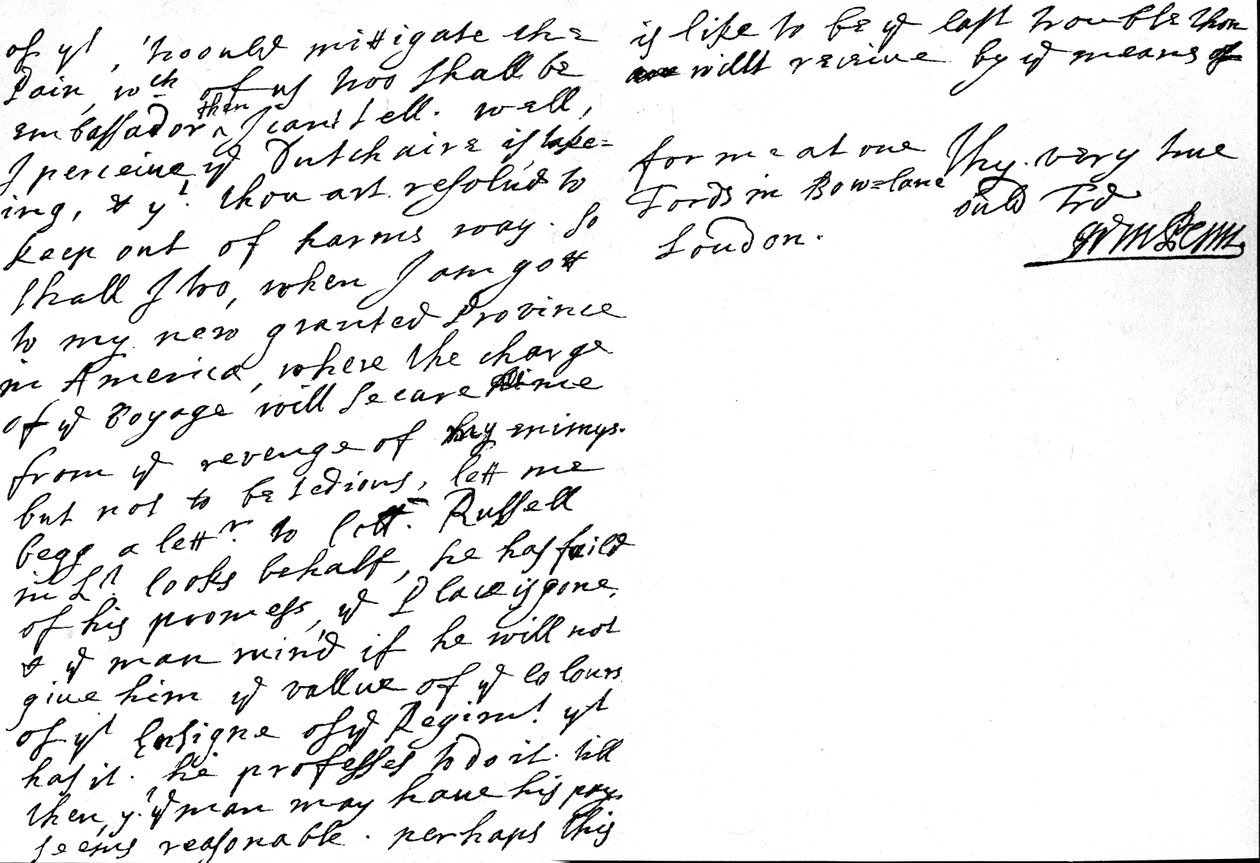 of yt, 'twould mittigate the
Pain, wch of us two shall be
embassador then I can't tell. well,
I perceive ye Dutch aire is take=
ing, & yt thou art resolu'd to
keep out of harms way. So
shall I two, when I am gott
to my new granted Province
in America, where the charge
of ye Voyage will secure me
from ye revenge of my enimys.
but not to be tedious, lett me
begg a lettr. to Coll. Russell
in Lt. looks behalf, he has faild
of his promess, ye Place is gone,
& ye man mind if he will not
give him ye vallue of ye Colours
of yt Ensigne of ye Regimt. yt
has it. he professes to do it. till
then, yt ye man may have his pay,
seems reasonable. perhaps this
is like to be ye last trouble thou
willt receive by ye means of
Thy very true
ould Frd
Wm Penn
for me at one
Fords in Bow=lane
London.